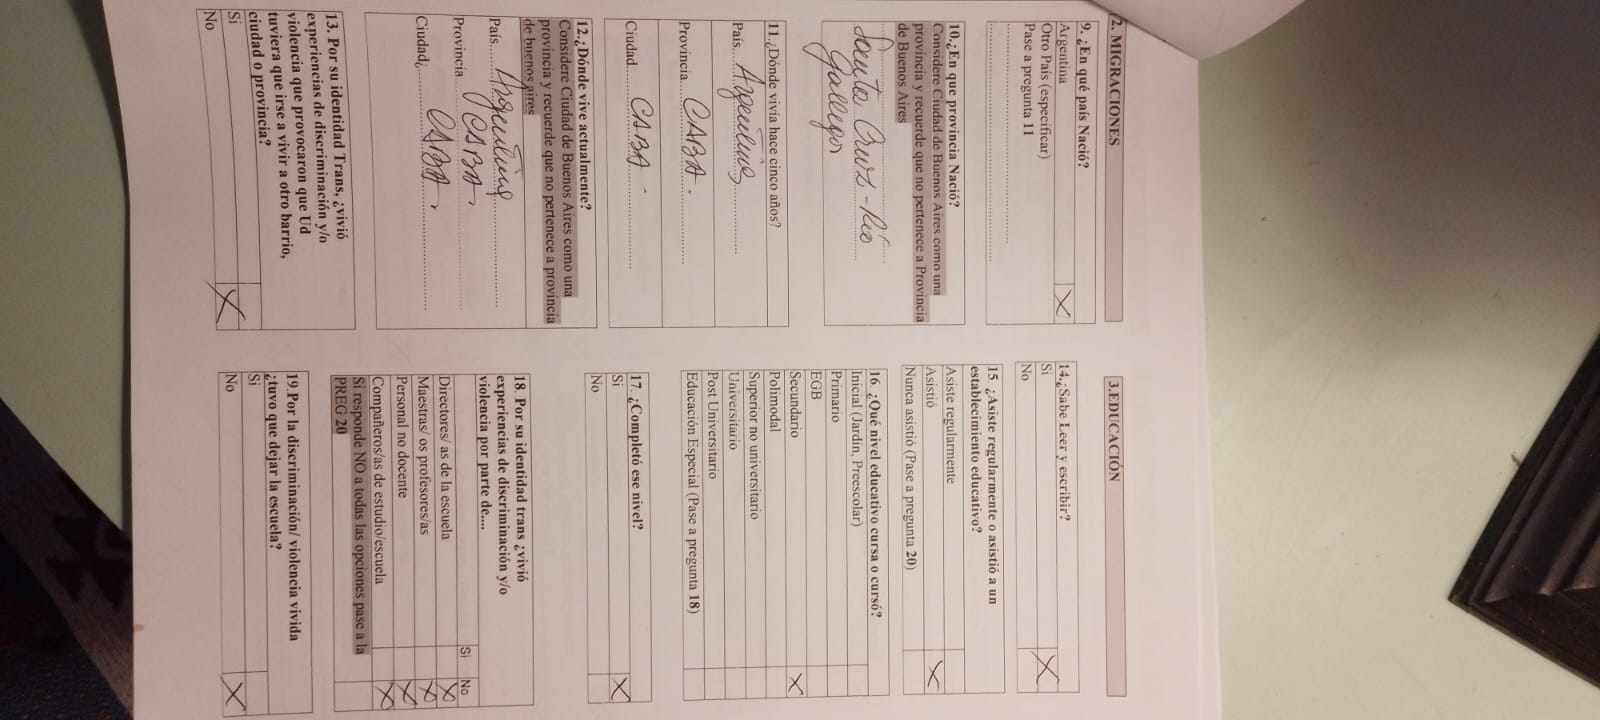 2. MIGRACIONES
9. ¿En qué país Nació?
Argentina X
Otro País (especificar)
Pase a pregunta 11
10.¿En que provincia Nació?
Considere Ciudad de Buenos Aires como una
provincia y recuerde que no pertenece a Provincia
de Buenos Aires
Santa Cruz - Río
Gallegos
11.¿Dónde vivía hace cinco años?
País Argentina
Provincia CABA.
Ciudad CABA
12.¿Dónde vive actualmente?
Considere Ciudad de Buenos Aires como una
provincia y recuerde que no pertenece a provincia
de buenos aires
País Argentina
Provincia CABA.
Ciudad¿ CABA.
13. Por su identidad Trans, ¿vivió
experiencias de discriminación y/o
violencia que provocaron que Ud
tuviera que irse a vivir a otro barrio,
ciudad o provincia?
Si
No X
3.EDUCACIÓN
14.¿Sabe Leer y escribir?
Si X
No
15. ¿Asiste regularmente o asistió a un
establecimiento educativo?
Asiste regularmente
Asistió X
Nunca asistió (Pase a pregunta 20)
16. ¿Qué nivel educativo cursa o cursó?
Inicial (Jardín, Preescolar)
Primario
EGB
Secundario X
Polimodal
Superior no universitario
Universitario
Post Universitario
Educación Especial (Pase a pregunta 18)
17. ¿Completó ese nivel?
Si X
No
18. Por su identidad trans ¿vivió
experiencias de discriminación y/o
violencia por parte de....
Si No
Directores/ as de la escuela X
Maestras/ os profesores/as X
Personal no docente X
Compañeros/as de estudio/escuela X
Si responde NO a todas las opciones pase a la
PREG 20
19.Por la discriminación/ violencia vivida
¿tuvo que dejar la escuela?
Si
No X